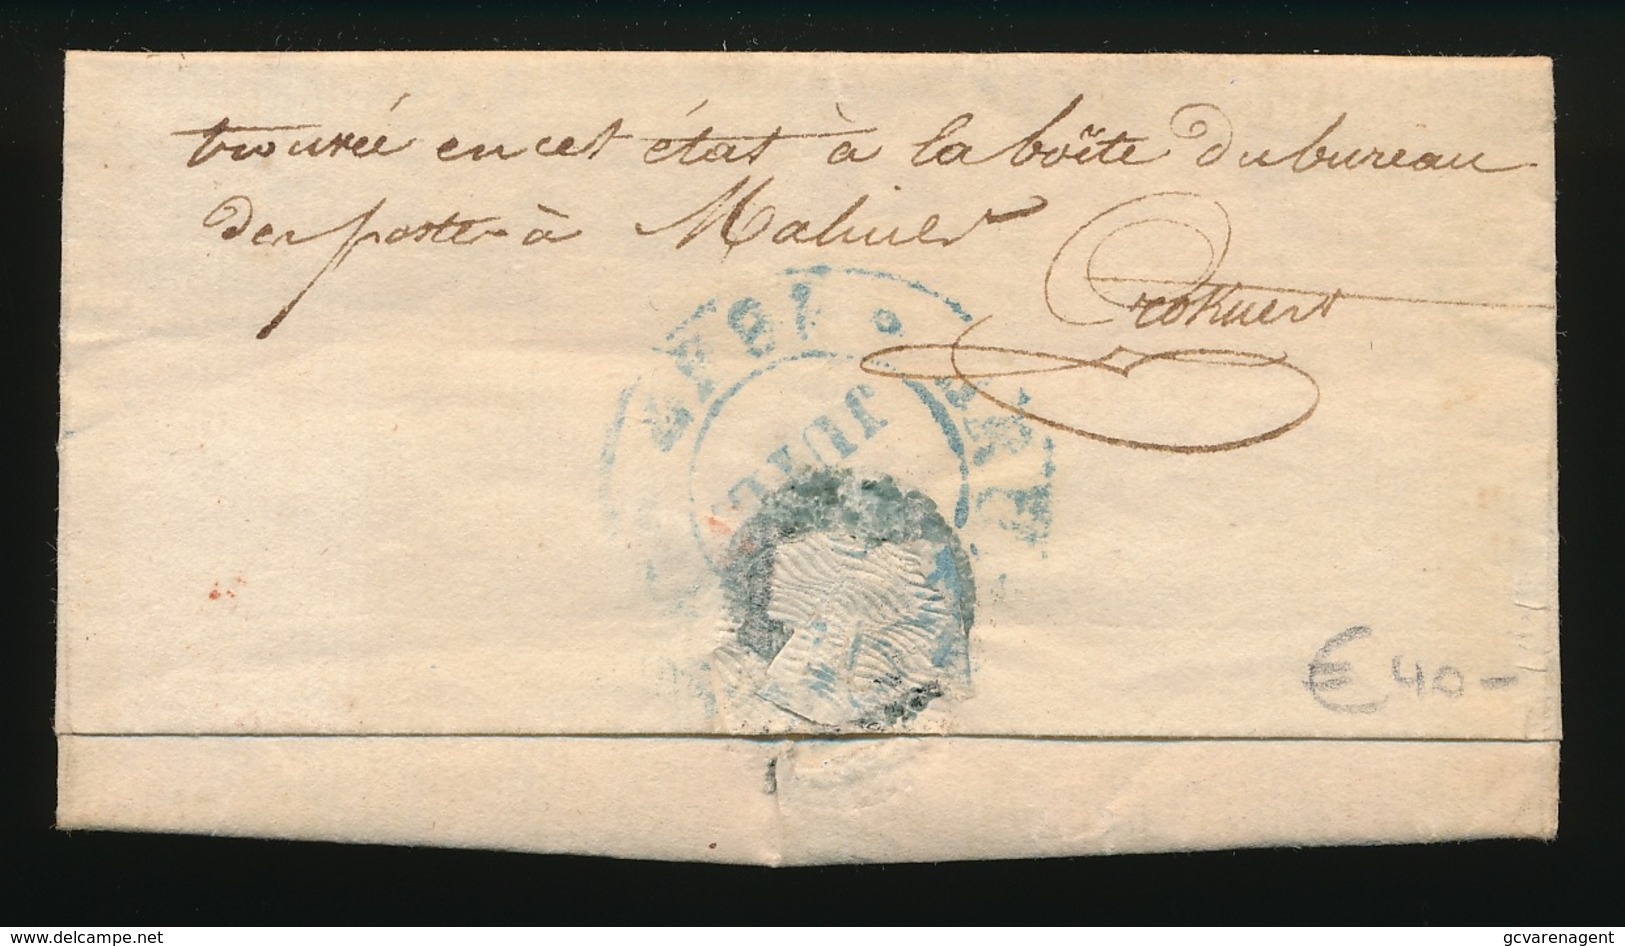 trouvée en cet état à la boîte du bureau
des postes à Malines
Crokaert
1847
JUIL
€ 40 -
delcampe.net
gcvarenagent